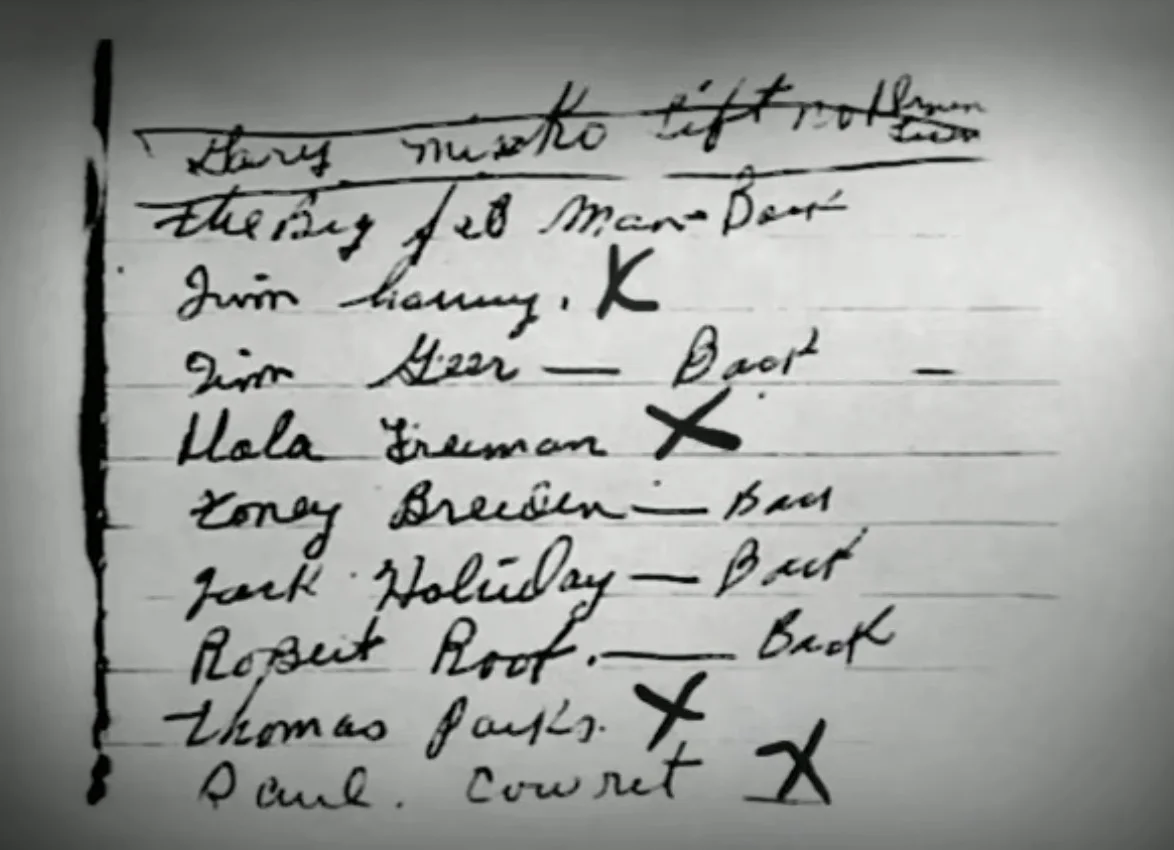 Gary Misko lift not
the Big fat Man - Back
Jimm
Jimm Geer — Back -
Hala Freeman X
Toney Breiden — Back
Jack Holiday — Back
Robert Root. — Back
Thomas Parks. X
Paul. Cowret X